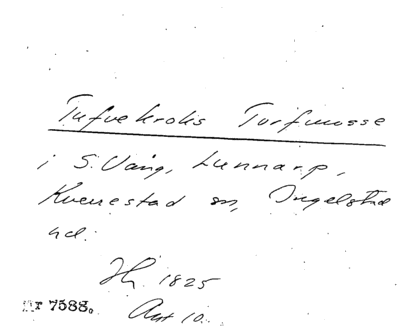 Tufvekroks Torfmosse
i S. Vång, Lunnarp,
Kverrestad sn, Ingelstad
hd.
Hj. 1825
Ant 10.
Nr 7588.